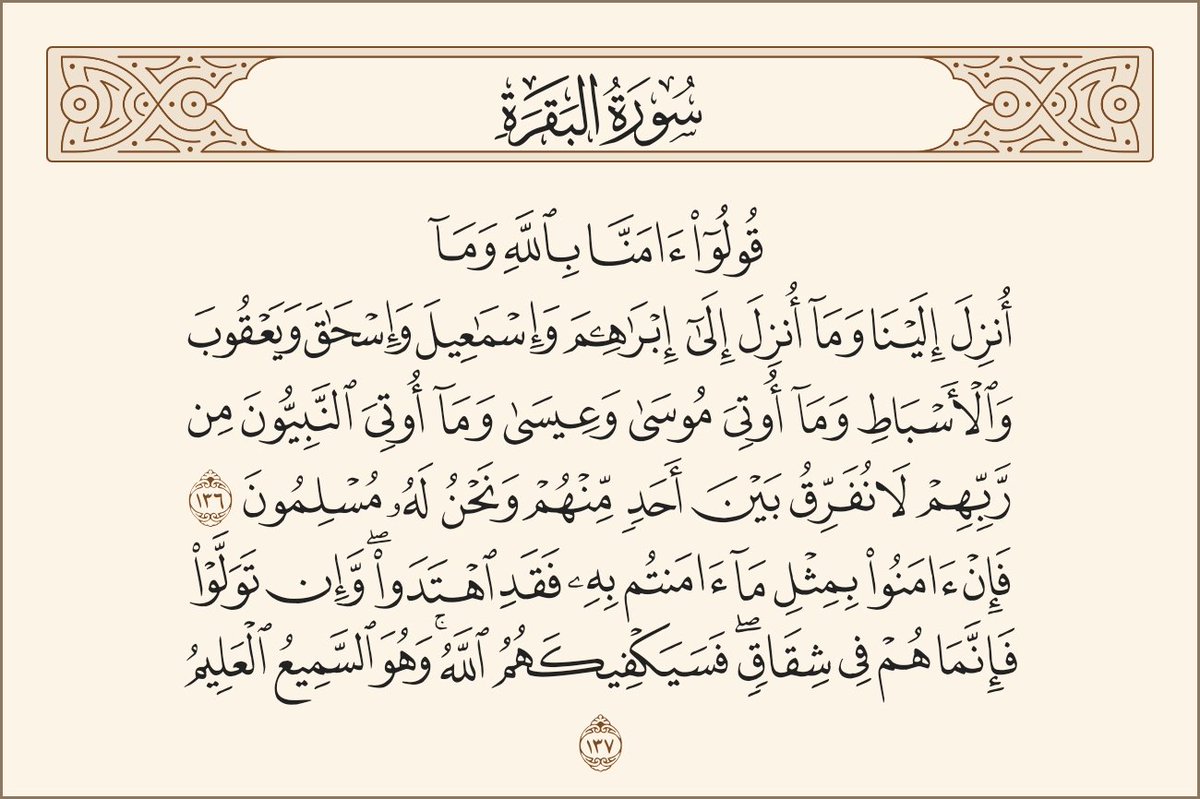 سُورَةُ البَقَرَةِ
قُولُوٓا۟ ءَامَنَّا بِٱللَّهِ وَمَآ
أُنزِلَ إِلَيْنَا وَمَآ أُنزِلَ إِلَىٰٓ إِبْرَٰهِـۧمَ وَإِسْمَـٰعِيلَ وَإِسْحَـٰقَ وَيَعْقُوبَ
وَٱلْأَسْبَاطِ وَمَآ أُوتِىَ مُوسَىٰ وَعِيسَىٰ وَمَآ أُوتِىَ ٱلنَّبِيُّونَ مِن
رَّبِّهِمْ لَا نُفَرِّقُ بَيْنَ أَحَدٍ مِّنْهُمْ وَنَحْنُ لَهُۥ مُسْلِمُونَ ١٣٦
فَإِنْ ءَامَنُوا۟ بِمِثْلِ مَآ ءَامَنتُم بِهِۦ فَقَدِ ٱهْتَدَوا۟ ۖ وَّإِن تَوَلَّوْا۟
فَإِنَّمَا هُمْ فِى شِقَاقٍ ۖ فَسَيَكْفِيكَهُمُ ٱللَّهُ ۚ وَهُوَ ٱلسَّمِيعُ ٱلْعَلِيمُ
١٣٧